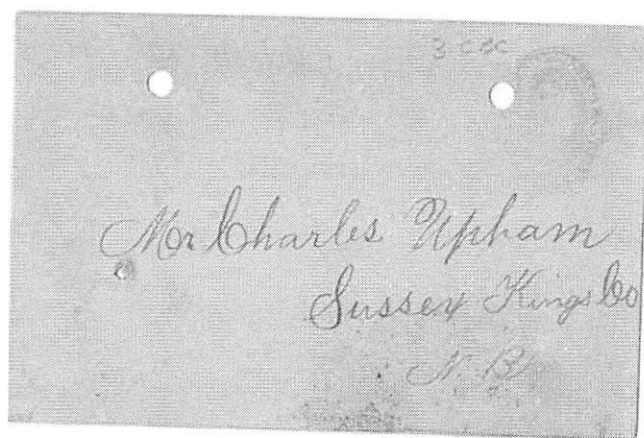 Mr Charles Upham
Sussex Kings Co
N.B